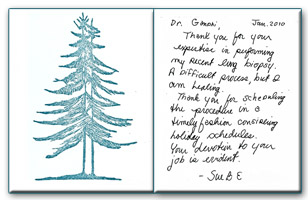 Dr. Gamori, Jan. 2010
Thank you for your
expertise in performing
my recent lung biopsy.
A difficult process, but I
am healing.
Thank you for scheduling
the procedure in a
timely fashion considering
holiday schedules.
Your devotion to your
job is evident.
- Sue B E